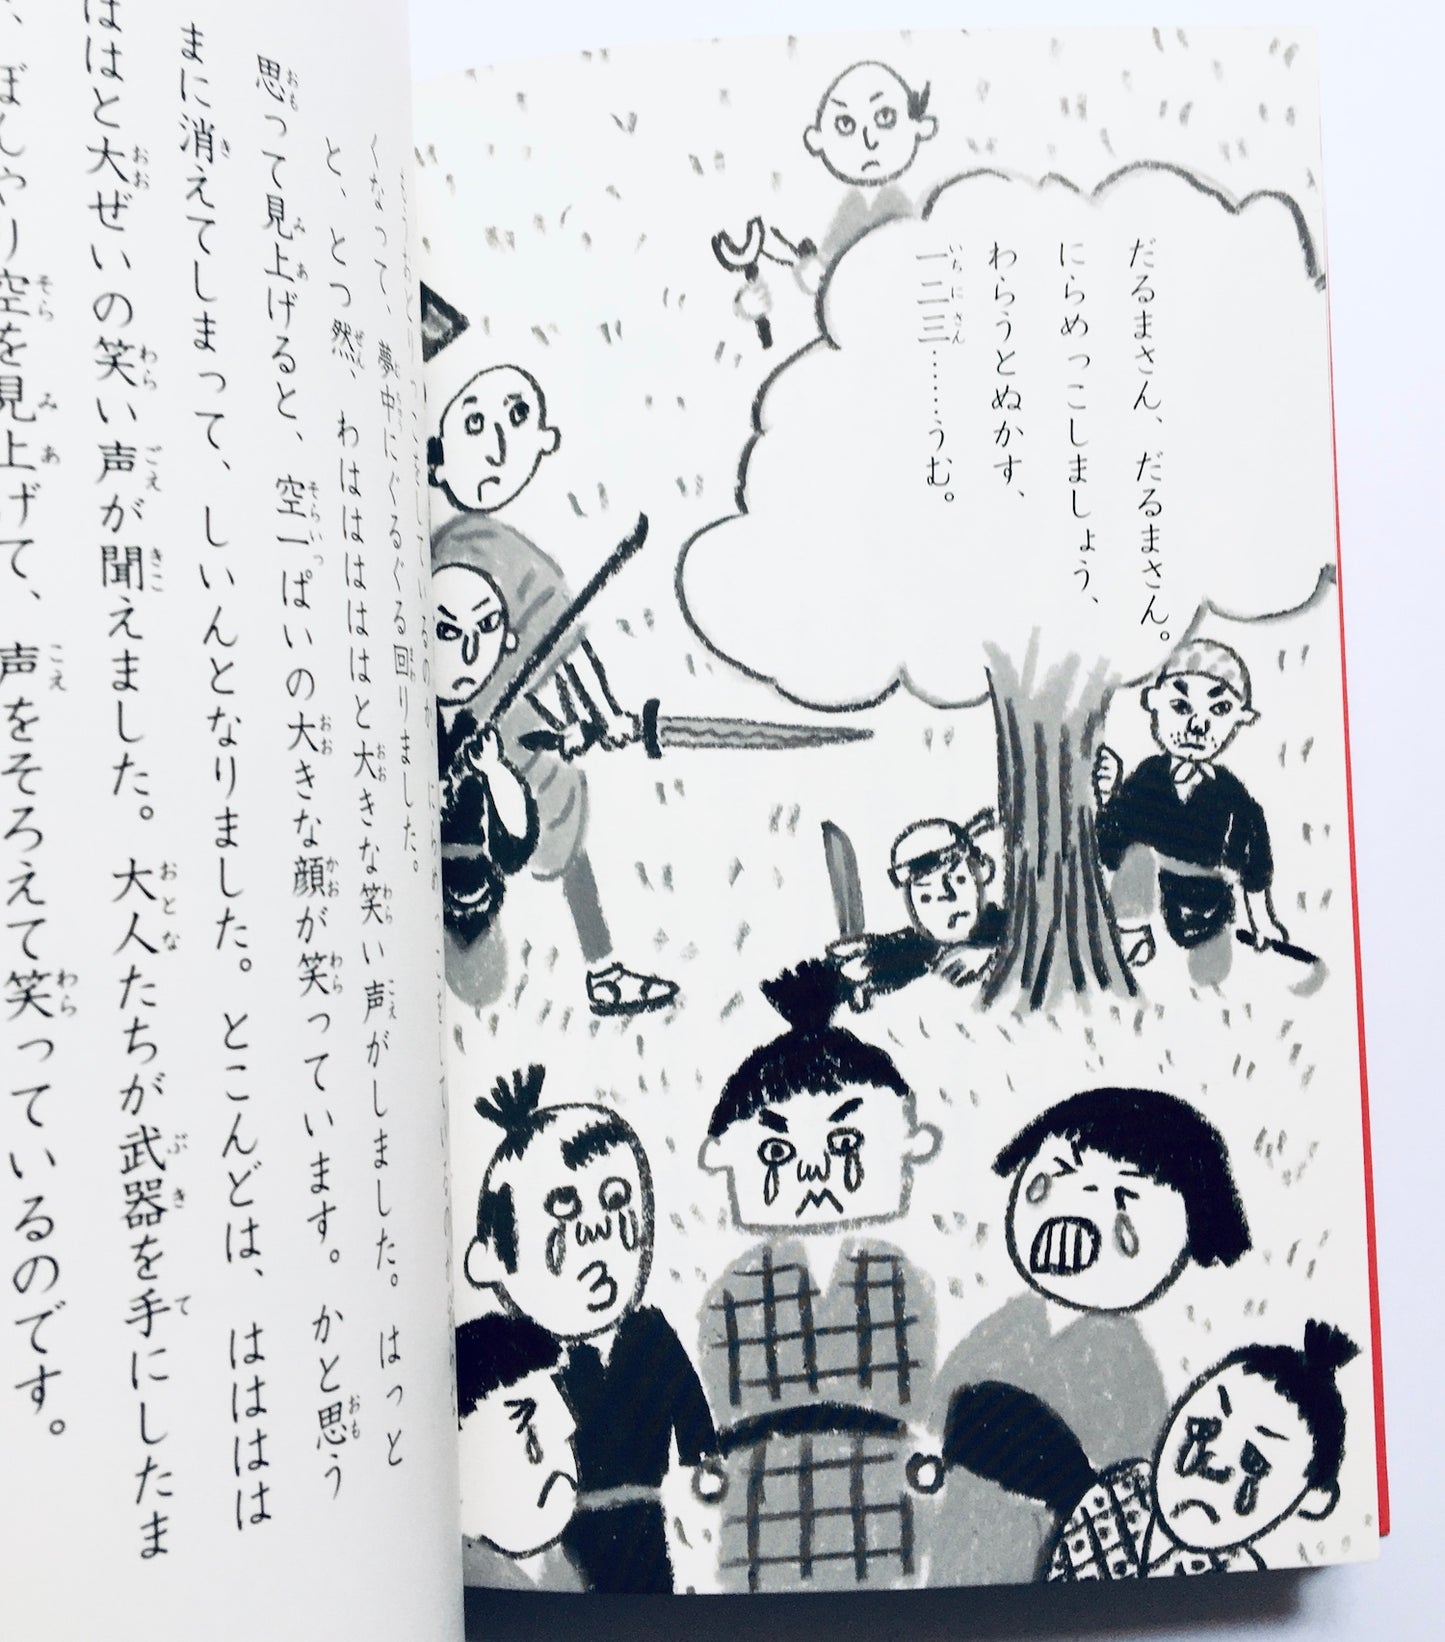 だるまさん、だるまさん。
にらめっこしましょう、
わらうとぬかす、
一二三………うむ。
くなって、夢中にぐるぐる回りました。
と、とつ然、わはははははと大きな笑い声がしました。はっと
思って見上げると、空一ぱいの大きな顔が笑っています。かと思う
まに消えてしまって、しいんとなりました。とこんどは、はははは
ははと大ぜいの笑い声が聞えました。大人たちが武器を手にしたま
、ぼんやり空を見上げて、声をそろえて笑っているのです。